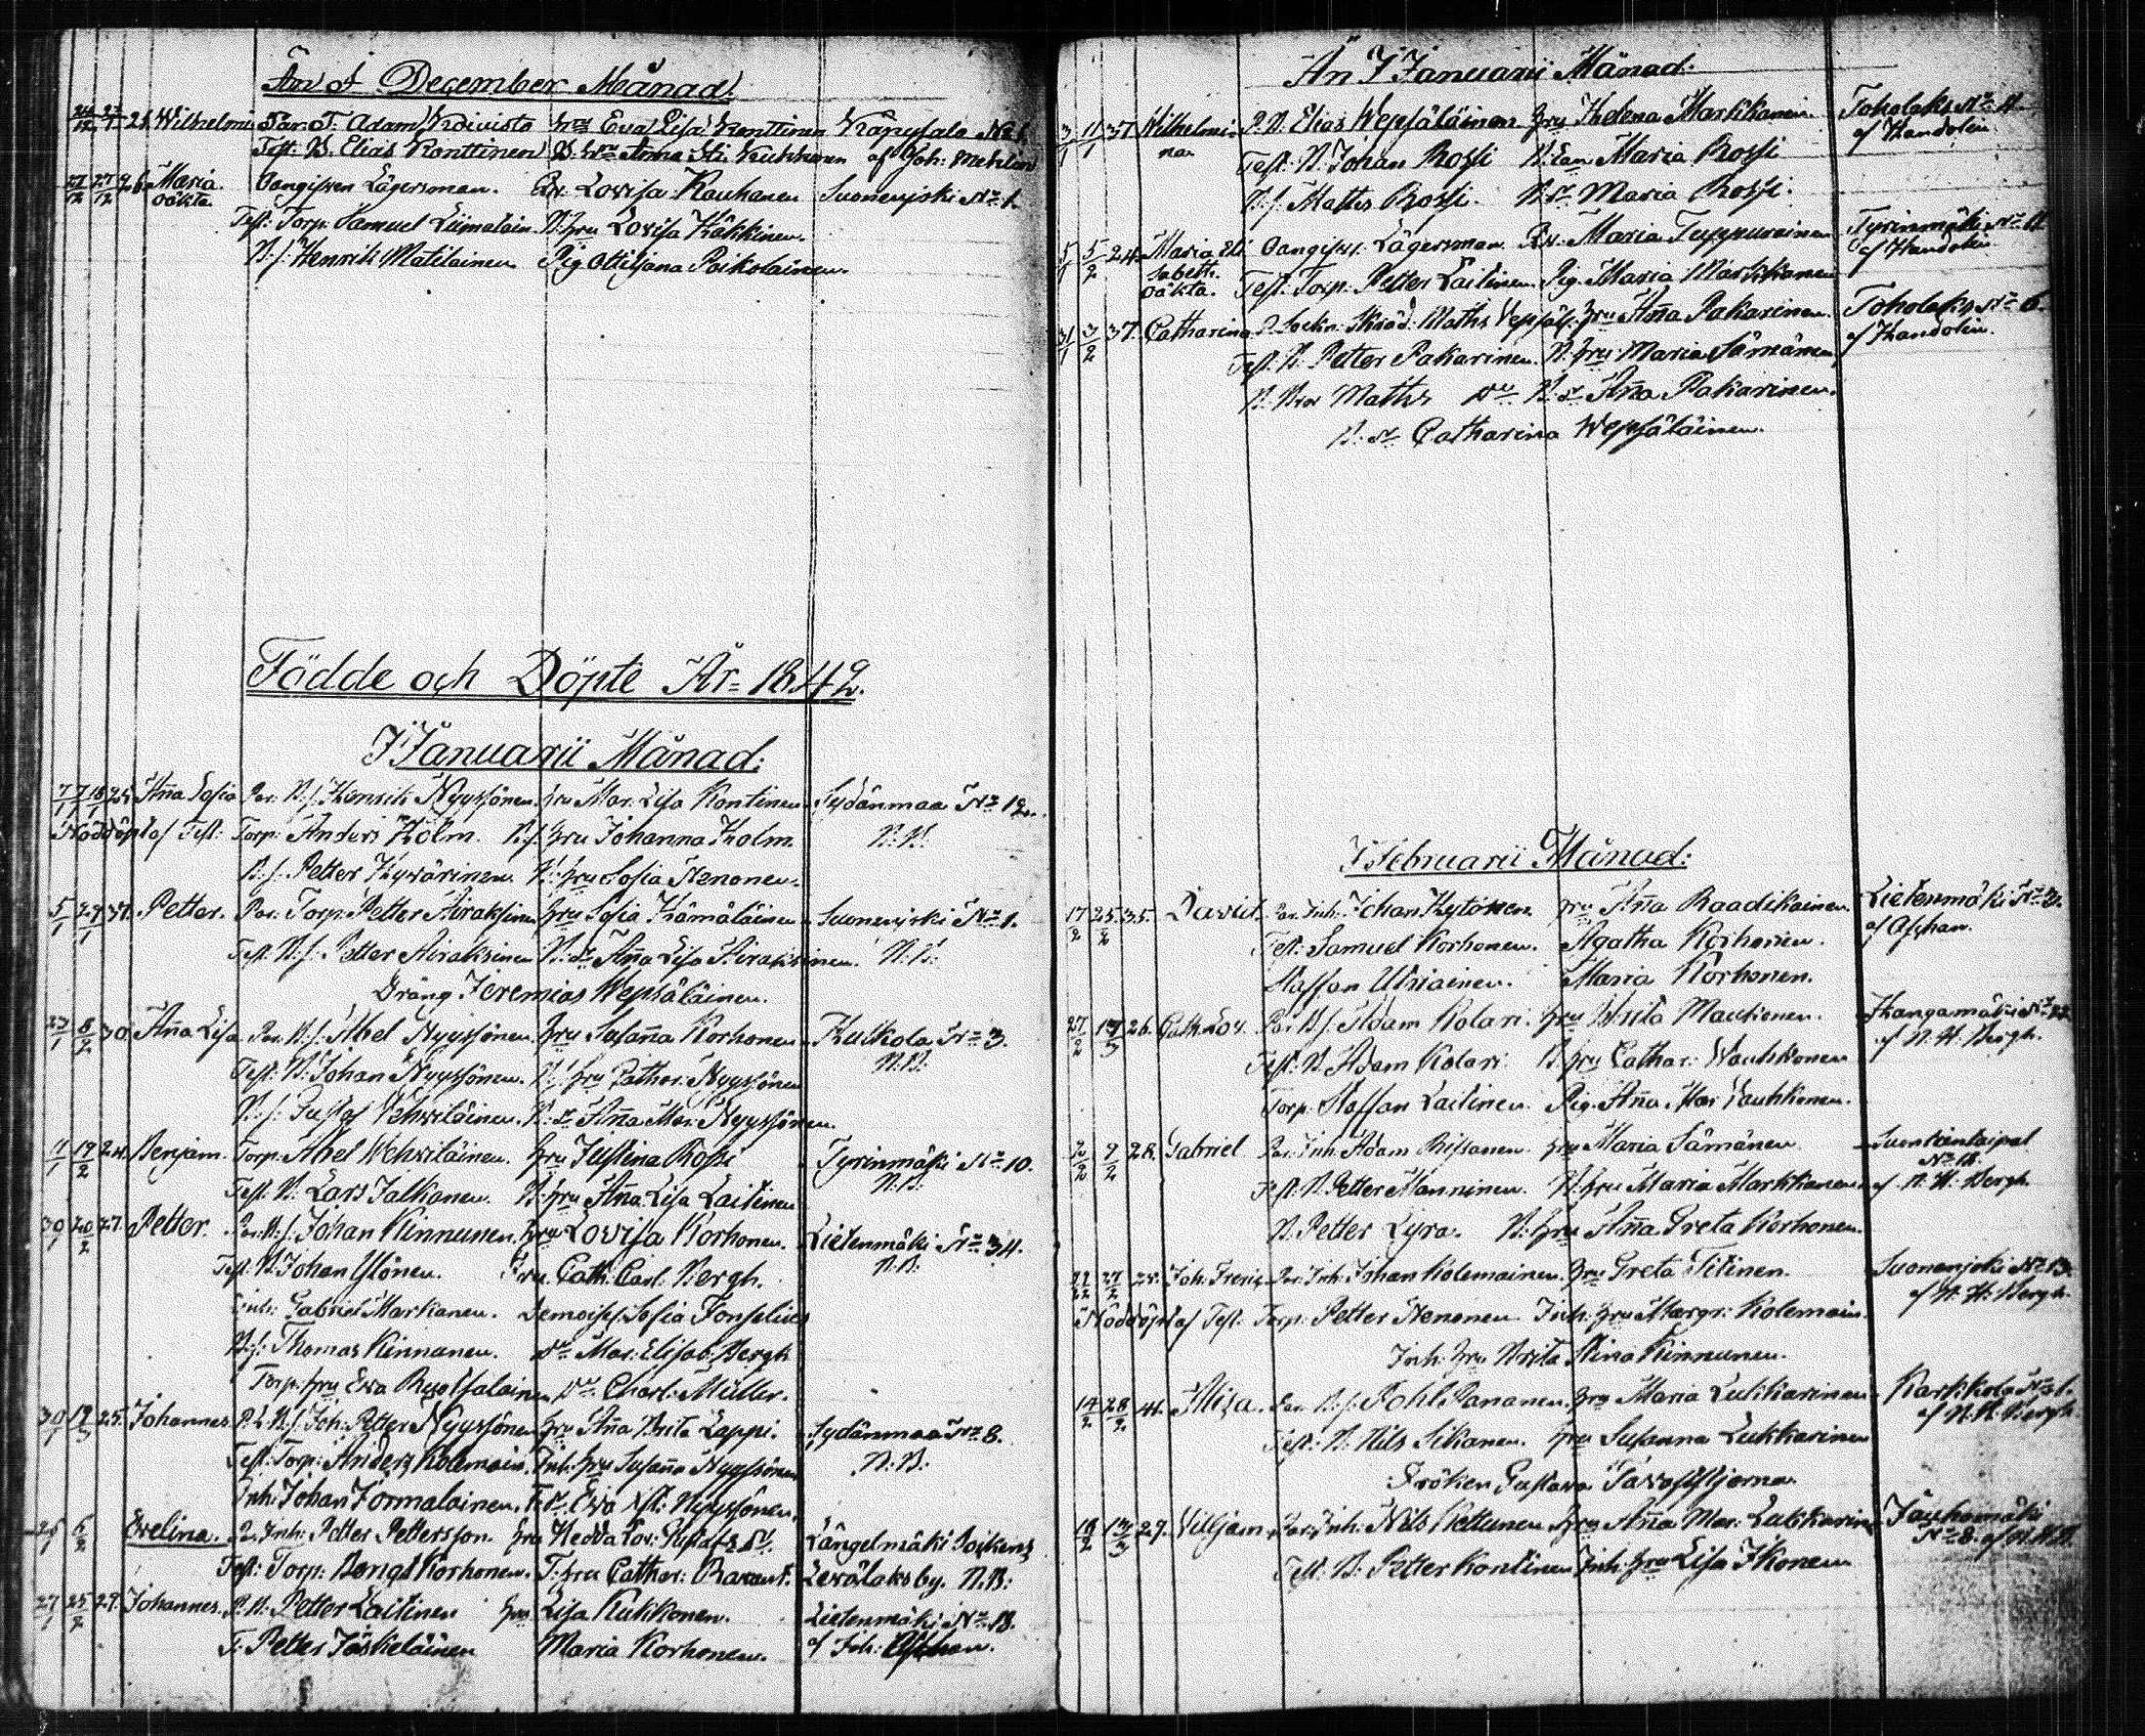 Än I December Månad.
24/12 2/1 21. Wilhelm Par. T. Adam Koivisto hru Eva Lisa Konttinen Käpysalo No 1.
Test. B. Elias Konttinen B. hru Anna Kukkonen af Joh: Mehlan
27/12 27/12 26. Maria Oangifven Lägersman. Qv. Lovisa Kauhanen Suonenjoki No 1.
oäkta. Test: Torp. Samuel Liimatain. B: hru Lovisa Häkkinen.
B. s. Henrik Matilainen Pig. Ottiljana Poikolainen.
Födde och Döpte År 1842.
I Januarii Månad:
7/1 16/1 25. Anna Sofia Par. B. s. Henrik Nyyssönen. hru Mar. Lisa Kontinen Sydänmaa No 12.
Nöddöpt af Test: Torp: Anders Holm. B. s. hru Johanna Holm. N. B.
B. s. Petter Hyvärinen B: hru Sofia Nenonen.
5/1 29/1 31. Petter. Par. Torp. Petter Airaksinen hru Sofia Hämäläinen Suonenjoki No 1.
Test. B. s. Petter Airaksinen B. dr Anna Lisa Airaksinen. N. B.
Dräng Jeremias Wepsäläinen.
23/1 8/2 30. Anna Lisa. Par. B. s. Abel Nyyssönen. hru Susanna Korhonen Kutkola No 3.
Test. B. Johan Nyyssönen. B. hru Cathar: Nyyssönen N. B.
B. s. Gustaf Wehviläinen. B. dr Anna Mar: Nyyssönen.
11/1 19/2 24. Benjam. Torp. Abel Wehviläinen. hru Justina Rossi Tyrinmäki No 10.
Test. B. Lars Jalkanen. B. hru Anna Lisa Laitinen N. B.
30/1 20/2 27. Petter. Par. B. s. Johan Kinnunen. hru Lovisa Korhonen. Lietenmäki No 34.
Test. B. Johan Ylönen. Fru Cath: Carl. Bergh. N. B.
Inh: Gabriel Markanen. Demoisel. Sofia Fonselius
B. s. Thomas Kinnanen. dr Mar: Elisab. Bergh
Torp. hru Eva Ruotsalainen dr Charl: Müller.
30/1 19/3 25. Johannes. B. s. Joh: Petter Nyyssönen hru Anna Brita Lappi. Sydänmaa No 8.
Test: Torp: Anders Kolemain. Inh. hru Susanna Nyyssönen N. B.
Inh. Johan Jormalainen. T. dr Eva Nyyssönen.
26/1 6/2 Evelina. Par. Inh: Petter Pettersson. hru Hedda Lov: Längelmäki Sockens
Test: Torp: Bengt Korhonen. T. hru Cathar: Leväläks by. N. B:
27/1 25/2 29. Johannes. P. B. Petter Laitinen hru Lisa Kukkonen. Lietenmäki No 13.
T: Petter Jäskeläinen Maria Korhonen. af Joh:
Än I Januarii Månad:
3/1 11/1 37. Wilhelmi P. B. Elias Wepsäläinen hru Helena Markkanen. Toholaks No 4.
na. Test. B. Johan Rossi B. Maria Rossi af Handolin.
B. s. Matts Rossi. B. dr Maria Rossi.
5/1 5/2 24. Maria Eli Oangifven Lägersman Qv. Maria Tuppurainen Tyrinmäki No 4
sabeth. oäkta. Test. Torp. Petter Laitinen. Pig. Maria Markkanen af Handolin.
31/1 3/2 37. Catharina P. Sockn. Skräd: Maths Vepsäl. hru Anna Pakarinen. Toholaks No 6.
Test. B. Petter Pakarinen. B. hru Maria Sämänen af Handolin.
B. Maths dr B. dr Anna Pakarinen.
B. dr Catharina Wepsäläinen.
I Februarii Månad:
17/2 25/2 35. David. Par. Inh. Johan Hytönen. hru Anna Raadikainen. Lietenmäki No 2.
Test: Samuel Korhonen. Agatha Korhonen. af Aschan.
Staffan Utriainen. Maria Korhonen.
27/2 17/3 26. Cath. Lov. Par. B. s. Adam Kolari. hru Brita Maukonen. Kangamäki
Test. B. Adam Kolari B. hru Cathar: Wauhkonen af N. H. Bergh.
Torp. Staffan Laitinen. Pig. Anna Mar Vauhkonen.
2/2 9/2 28. Gabriel Par. Inh. Adam Rissanen. hru Maria Sämänen. Suontientaipal
Test. B. Petter Manninen. B. hru Maria Markkanen. No 18. af N. H. Bergh.
B. Petter Lyra. B. hru Anna Greta Korhonen.
22/2 27/2 28. Joh: Fredric. Par. Inh: Johan Kolemainen. hru Greta Titinen. Suonenjoki No 13.
Nöddöpt af Test. Torp. Petter Nenonen. Inh. hru Margr: Kolemain. af N. H. Bergh.
Inh. hru Brita Stina Kinnunen.
14/2 28/2 41. Aliza. Par. B. s. Pananen. hru Maria Lukkarinen Karkkola No 1.
Test: B. Nils Sikanen. hru Susanna Lukkarinen af N. H. Bergh.
Fröken Gustava Tavaststjerna.
18/2 13/3 29. Viljam. Par. Inh. Nils Kettunen hru Anna Mar. Lukkarin. Jauhomäki
Test. B: Petter Kontinen Inh. hru Lisa Ikonen No 8. af N. H. B.